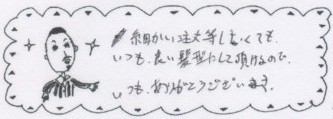 細かい注文等しなくても、
いつも、良い髪型にして頂けるので、
いつも、ありがとうございます。